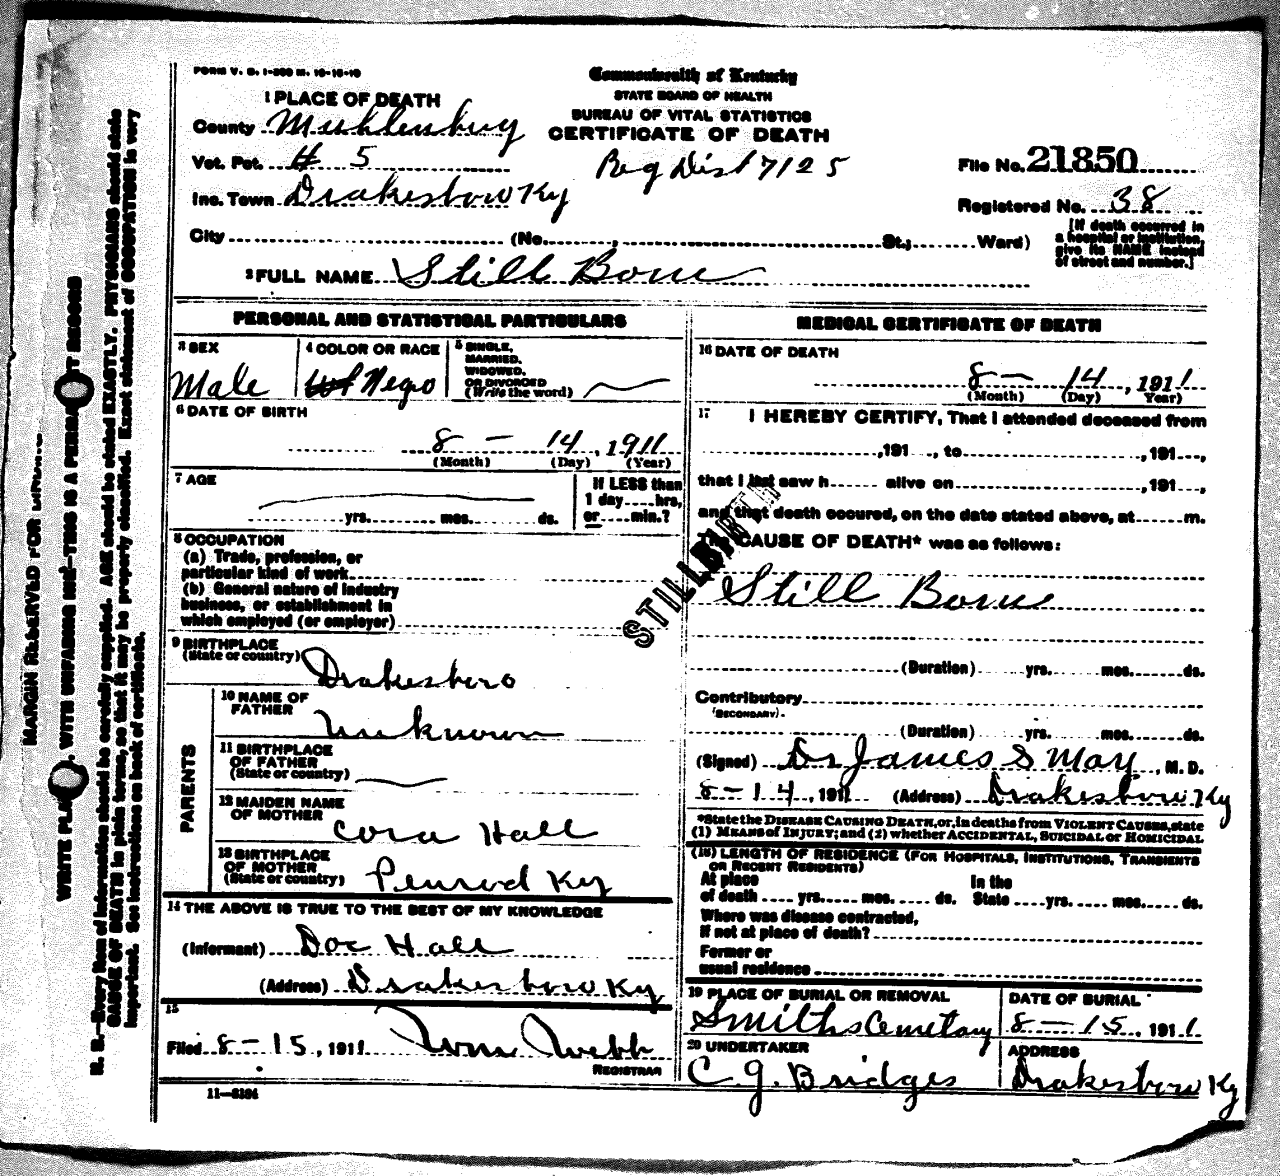 FORM V. S. 1-200 M. 10-15-10
Commonwealth of Kentucky
STATE BOARD OF HEALTH
BUREAU OF VITAL STATISTICS
CERTIFICATE OF DEATH
1 PLACE OF DEATH
County Muhlenburg
Vot. Pct. # 5
Reg Dist 7125
File No. 21850
Inc. Town Drakesboro Ky
Registered No. 38
City (No. , St.; Ward)
[If death occurred in a hospital or institution, give its NAME instead of street and number.]
2 FULL NAME Still Borne
PERSONAL AND STATISTICAL PARTICULARS
3 SEX
Male
4 COLOR OR RACE
Negro
5 SINGLE, MARRIED, WIDOWED, OR DIVORCED (Write the word)
6 DATE OF BIRTH
8 - 14, 1911
(Month) (Day) (Year)
7 AGE
yrs. mos. ds.
If LESS than 1 day hrs, or min.?
8 OCCUPATION
(a) Trade, profession, or
particular kind of work
(b) General nature of industry
business, or establishment in
which employed (or employer)
9 BIRTHPLACE
(State or country) Drakesboro
PARENTS
10 NAME OF FATHER Unknown
11 BIRTHPLACE OF FATHER (State or country)
12 MAIDEN NAME OF MOTHER Cora Hall
13 BIRTHPLACE OF MOTHER (State or country) Penrod Ky
14 THE ABOVE IS TRUE TO THE BEST OF MY KNOWLEDGE
(Informant) Doc Hall
(Address) Drakesboro Ky
15
Filed 8-15, 1911 Wm Webb
REGISTRAR
11-5184
MEDICAL CERTIFICATE OF DEATH
16 DATE OF DEATH
8 - 14, 1911
(Month) (Day) (Year)
17 I HEREBY CERTIFY, That I attended deceased from
, 191 , to , 191 ,
that I last saw h alive on , 191 ,
and that death occured, on the date stated above, at m.
The CAUSE OF DEATH* was as follows:
STILLBIRTH
Still Borne
(Duration) yrs. mos. ds.
Contributory
(SECONDARY)
(Duration) yrs. mos. ds.
(Signed) Dr James S May, M. D.
8-14, 1911 (Address) Drakesboro Ky
*State the DISEASE CAUSING DEATH, or, in deaths from VIOLENT CAUSES, state
(1) MEANS of INJURY; and (2) whether ACCIDENTAL, SUICIDAL or HOMICIDAL
(18) LENGTH OF RESIDENCE (FOR HOSPITALS, INSTITUTIONS, TRANSIENTS
OR RECENT RESIDENTS)
At place of death yrs. mos. ds. In the State yrs. mos. ds.
Where was disease contracted,
If not at place of death?
Former or
usual residence
19 PLACE OF BURIAL OR REMOVAL
Smiths Cemetary
DATE OF BURIAL
8-15, 1911
20 UNDERTAKER
C. G. Bridges
ADDRESS
Drakesboro Ky
MARGIN RESERVED FOR
WRITE PLAINLY, WITH UNFADING INK—THIS IS A PERMANENT RECORD
N. B.—Every item of information should be carefully supplied. AGE should be stated EXACTLY. PHYSICIANS should state
CAUSE OF DEATH in plain terms, so that it may be properly classified. Exact statement of OCCUPATION is very
important. See instructions on back of certificate.